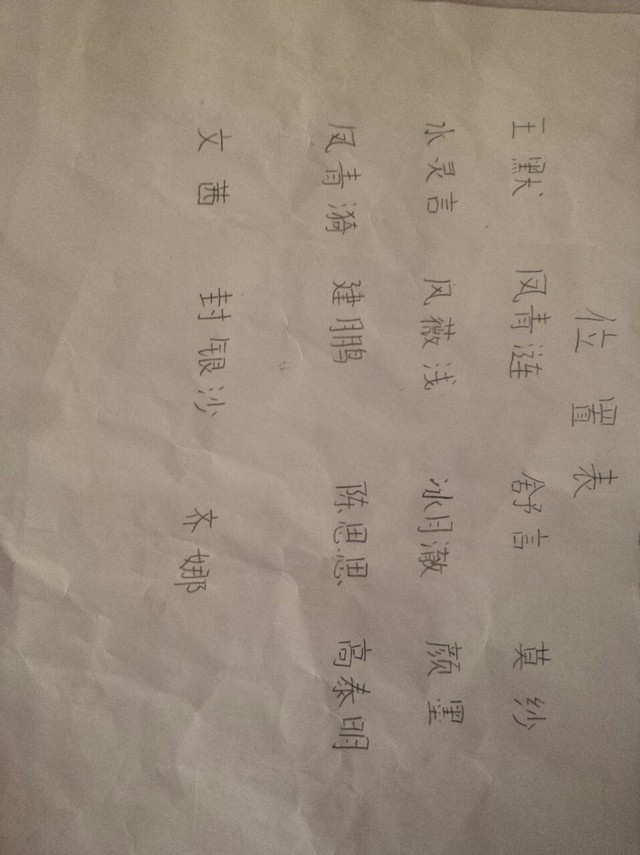 位置表
王默 凤青涟 舒言 莫纱
水灵言 风薇浅 冰月澈 颜墨
凤青漪 建鹏 陈思思 高泰明
文茜 封银沙 齐娜